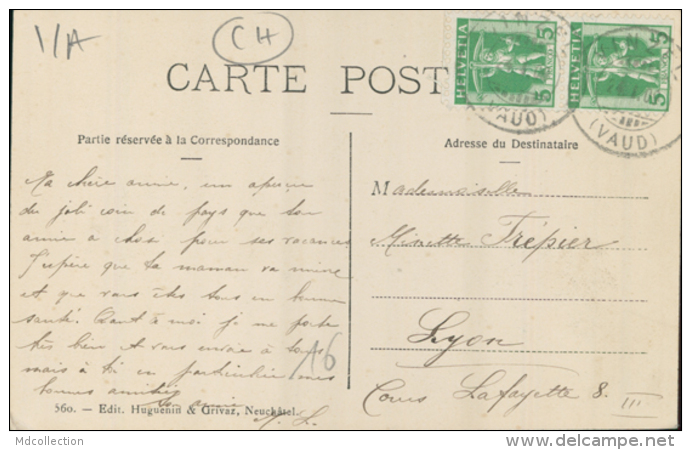 1/A
CH
CARTE POST
HELVETIA 5
HELVETIA 5
(VAUD)
(VAUD)
Partie réservée à la Correspondance
Adresse du Destinataire
Ma chère amie, un aperçu
du joli coin de pays que ton
amie a choisi pour ses vacances
J'espère que ta maman va mieux
et que vous êtes tous en bonne
santé. Quant à moi je me porte
très bien et vous envoie à tous
mais à toi en particulier mes
bonnes amitiés
Ton amie
M. L.
16
Mademoiselle
Minette Trépier
Lyon
Cours Lafayette 8.
III
560. — Edit. Huguenin & Grivaz, Neuchâtel.
Mdcollection
www.delcampe.net